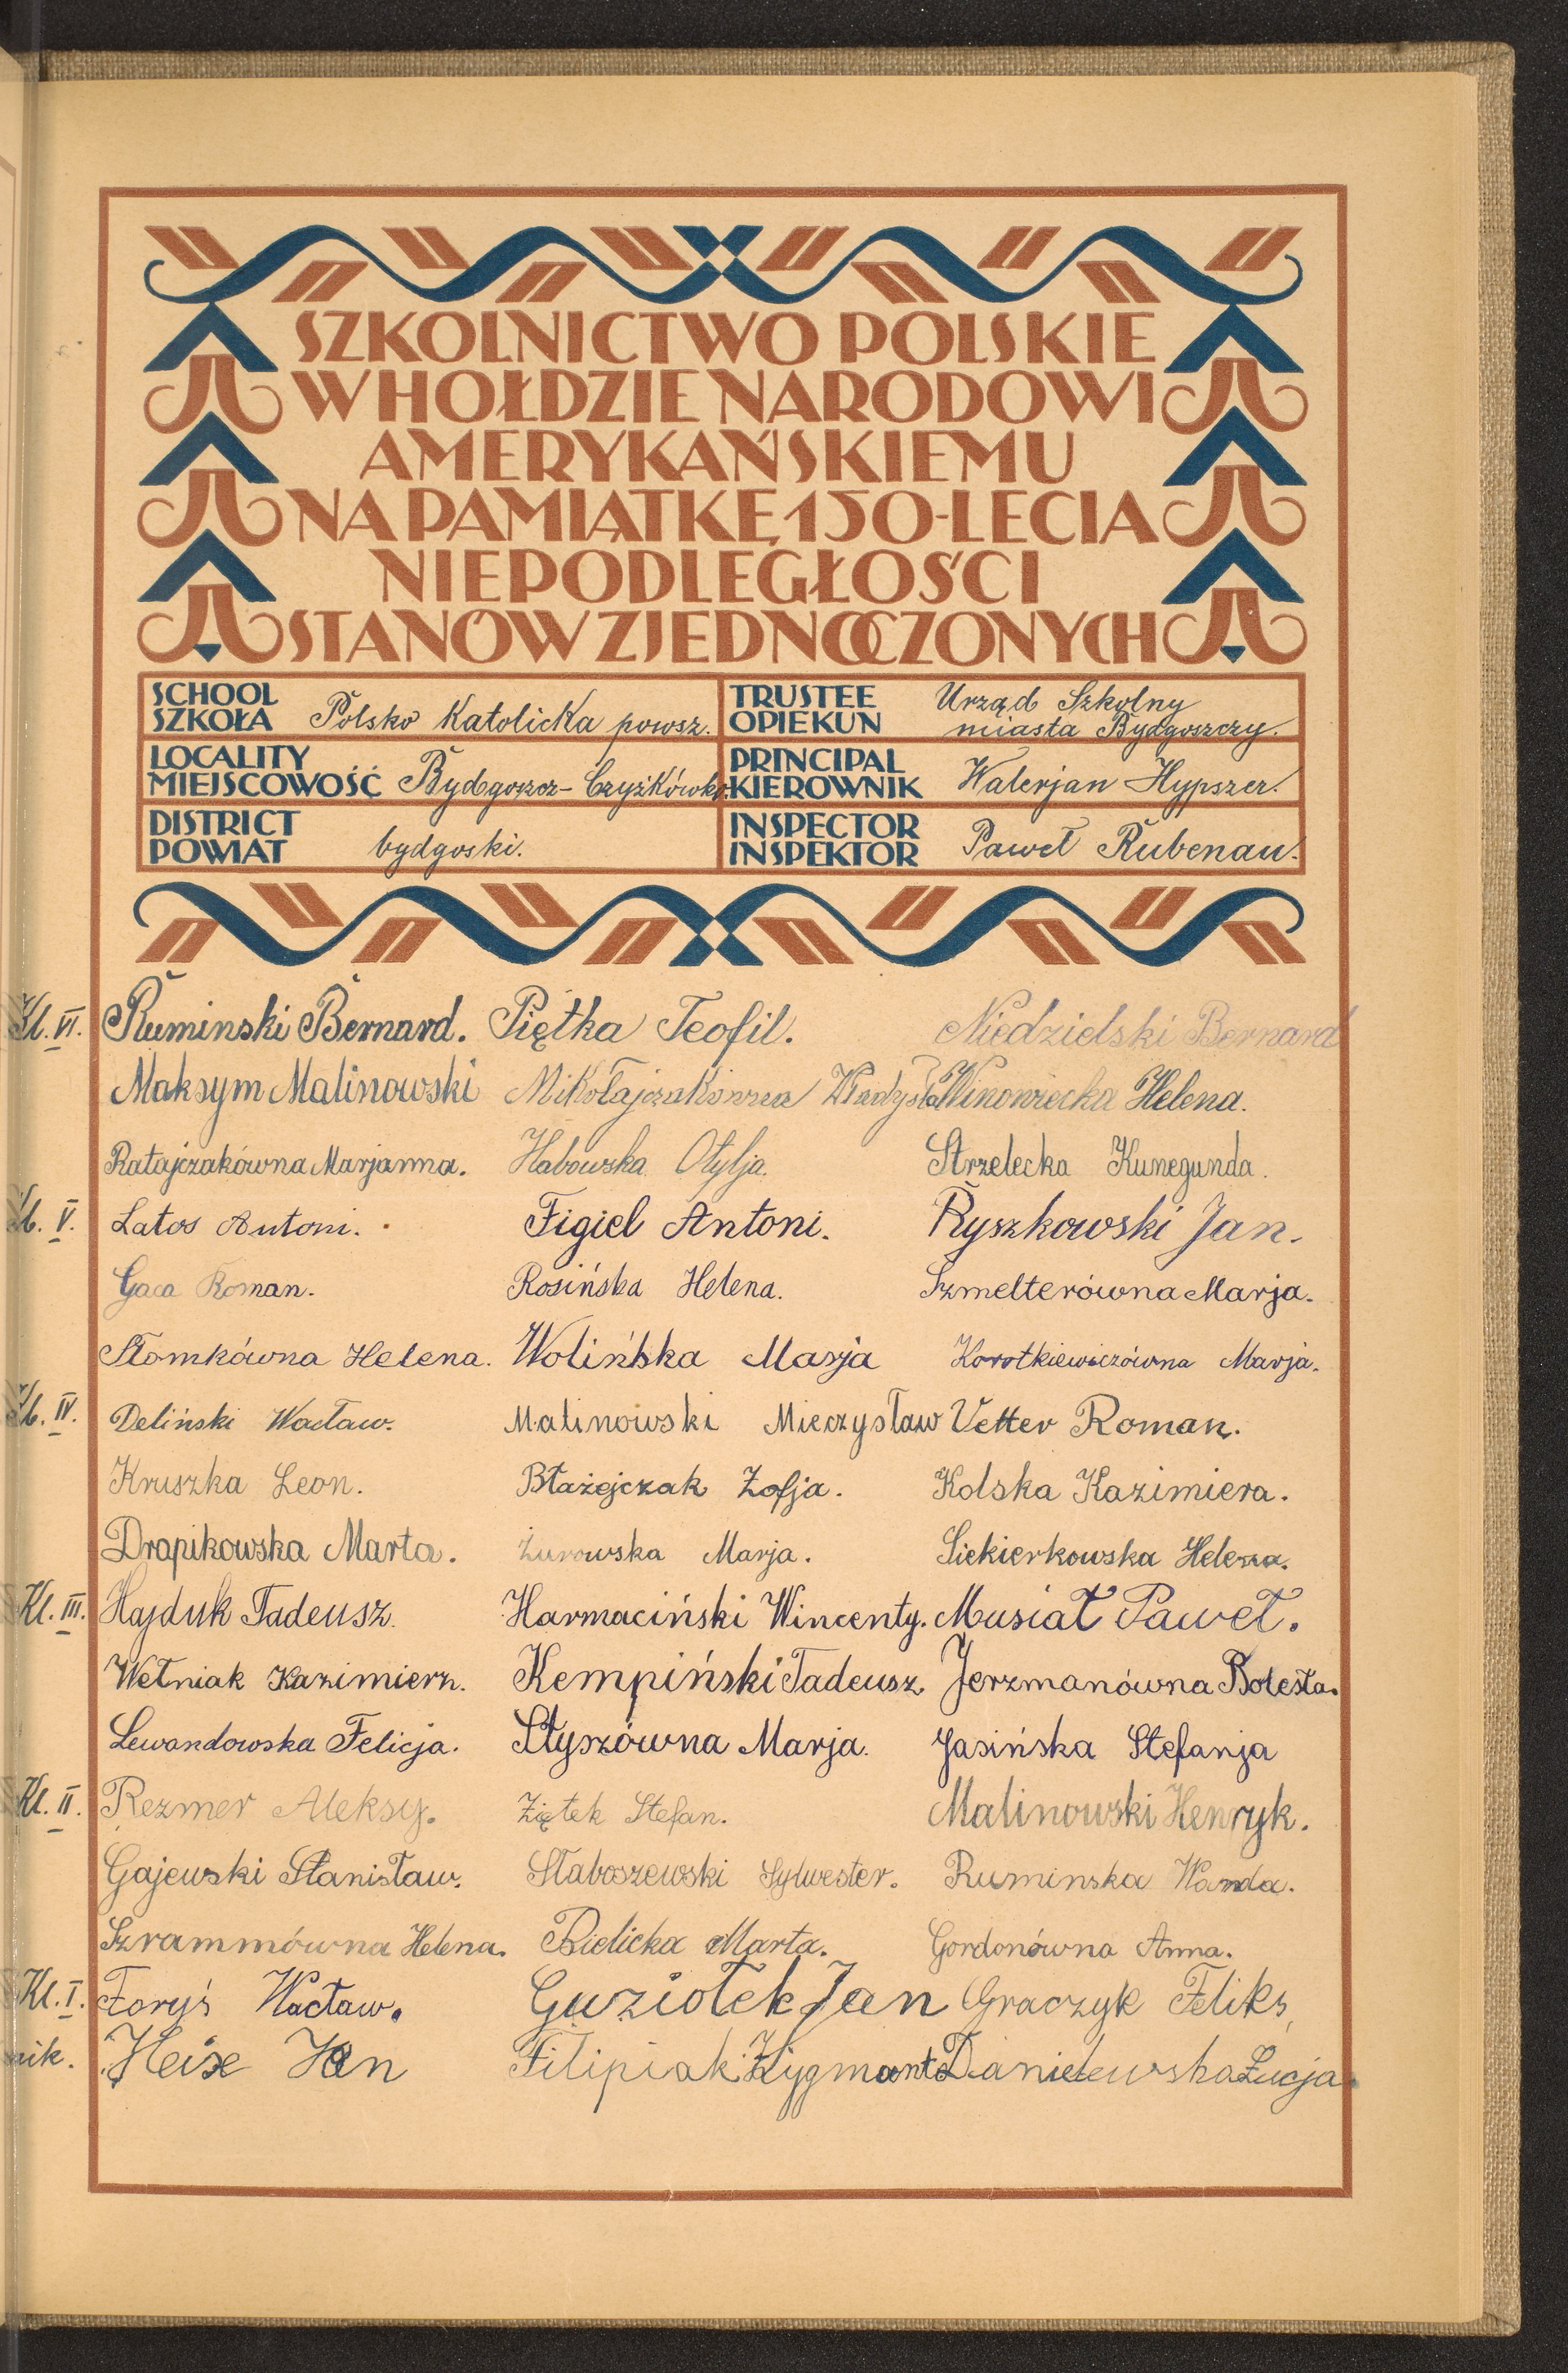 SZKOLNICTWO POLSKIE
W HOŁDZIE NARODOWI
AMERYKAŃSKIEMU
NA PAMIĄTKĘ 150-LECIA
NIEPODLEGŁOŚCI
STANÓW ZJEDNOCZONYCH
SCHOOL
SZKOŁA Polsko Katolicka powsz.
TRUSTEE
OPIEKUN Urząd Szkolny
miasta Bydgoszczy.
LOCALITY
MIEJSCOWOŚĆ Bydgoszcz - Czyżkówko.
PRINCIPAL
KIEROWNIK Walerjan Hypszer.
DISTRICT
POWIAT bydgoski.
INSPECTOR
INSPEKTOR Paweł Rubenau.
Kl. VI. Ruminski Bernard. Piętka Teofil. Niedzielski Bernard
Maksym Malinowski Mikołajczakówna Władysła Winowiecka Helena.
Ratajczakówna Marjanna. Habowska Otylja. Strzelecka Kunegunda.
Kl. V. Latos Antoni. Figiel Antoni. Ryszkowski Jan.
Gaca Roman. Rosińska Helena. Szmelterówna Marja.
Słomkówna Helena. Wolińska Marja Korotkiewiczówna Marja.
Kl. IV. Deliński Wacław. Malinowski Mieczysław Vetter Roman.
Kruszka Leon. Błażejczak Zofja. Kolska Kazimiera.
Drapikowska Marta. Żurowska Marja. Siekierkowska Helena.
Kl. III. Hajduk Tadeusz. Harmaciński Wincenty. Musiał Paweł.
Wełniak Kazimierz. Kempiński Tadeusz Jerzmanówna Bolesła.
Lewandowska Felicja. Styszówna Marja. Jasińska Stefanja
Kl. II. Rezmer Aleksy. Ziętek Stefan. Malinowski Henryk.
Gajewski Stanisław. Słaboszewski Sylwester. Ruminska Wanda.
Szrammówna Helena. Bielicka Marta. Gordonówna Anna.
Kl. I. Foryś Wacław. Guziołek Jan Graczyk Feliks,
nik. Heise Jan Filipiak Zygmont Danielewska Łucja.